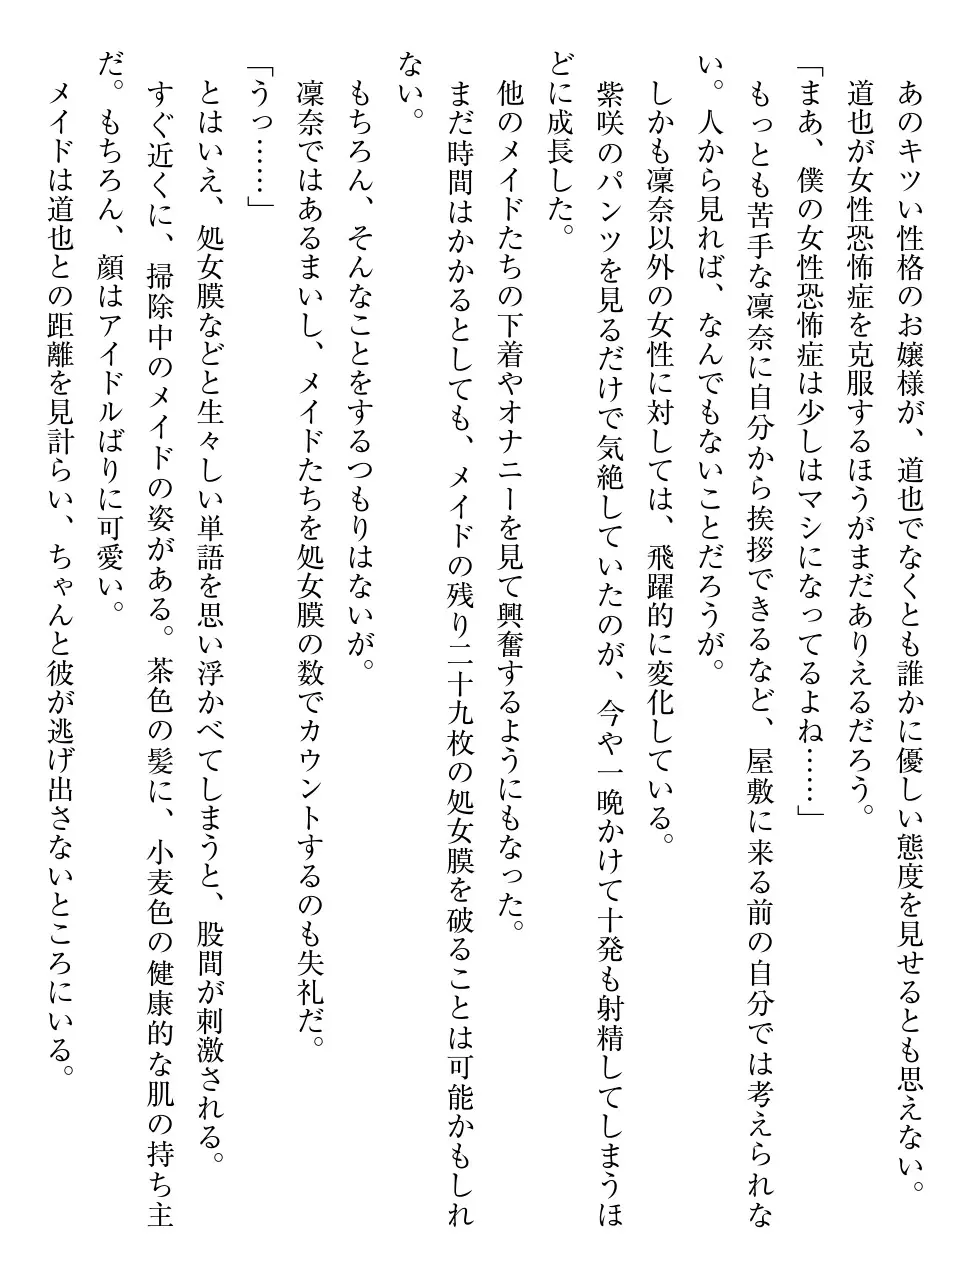 あのキツい性格のお嬢様が、道也でなくとも誰かに優しい態度を見せるとも思えない。
道也が女性恐怖症を克服するほうがまだありえるだろう。
「まあ、僕の女性恐怖症は少しはマシになってるよね……」
もっとも苦手な凜奈に自分から挨拶できるなど、屋敷に来る前の自分では考えられな
い。人から見れば、なんでもないことだろうが。
しかも凜奈以外の女性に対しては、飛躍的に変化している。
紫咲のパンツを見るだけで気絶していたのが、今や一晩かけて十発も射精してしまうほ
どに成長した。
他のメイドたちの下着やオナニーを見て興奮するようにもなった。
まだ時間はかかるとしても、メイドの残り二十九枚の処女膜を破ることは可能かもしれ
ない。
もちろん、そんなことをするつもりはないが。
凜奈ではあるまいし、メイドたちを処女膜の数でカウントするのも失礼だ。
「うっ……」
とはいえ、処女膜などと生々しい単語を思い浮かべてしまうと、股間が刺激される。
すぐ近くに、掃除中のメイドの姿がある。茶色の髪に、小麦色の健康的な肌の持ち主
だ。もちろん、顔はアイドルばりに可愛い。
メイドは道也との距離を見計らい、ちゃんと彼が逃げ出さないところにいる。